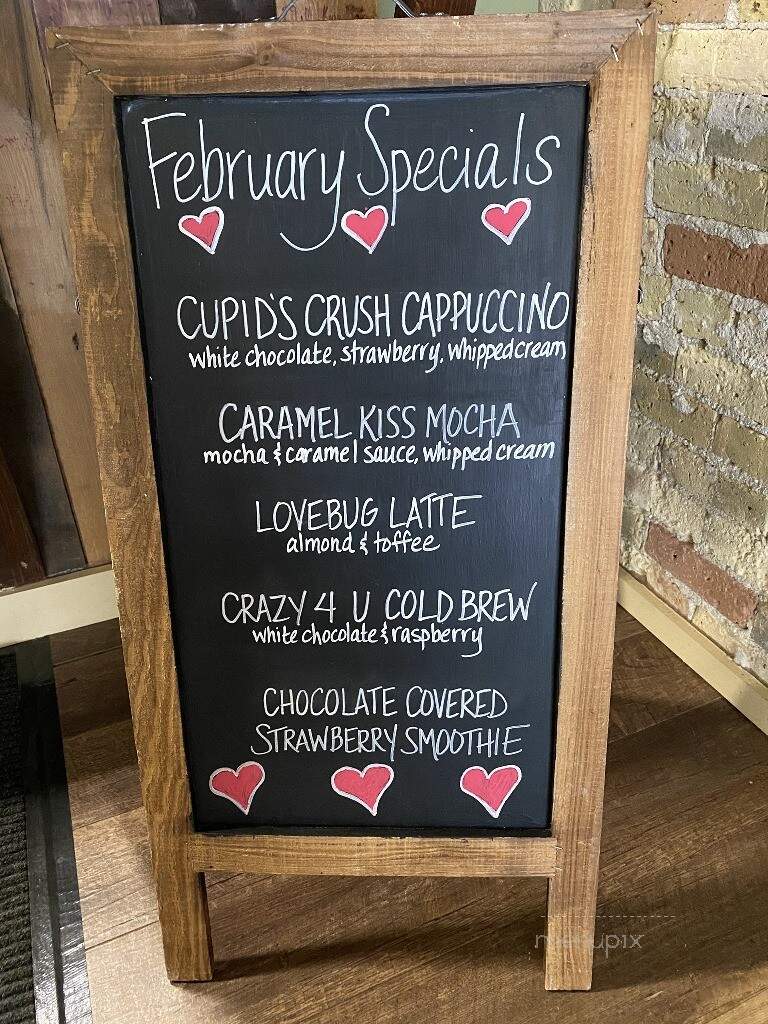 February Specials
CUPID'S CRUSH CAPPUCCINO
white chocolate, strawberry, whipped cream
CARAMEL KISS MOCHA
mocha & caramel sauce, whipped cream
LOVEBUG LATTE
almond & toffee
CRAZY 4 U COLD BREW
white chocolate & raspberry
CHOCOLATE COVERED
STRAWBERRY SMOOTHIE
menupix